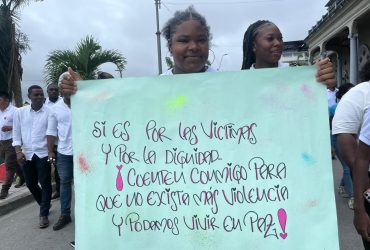 Si es por las victimas
y por la dignidad.
¡Cuenten conmigo para
que no exista más violencia
y podamos vivir en paz!